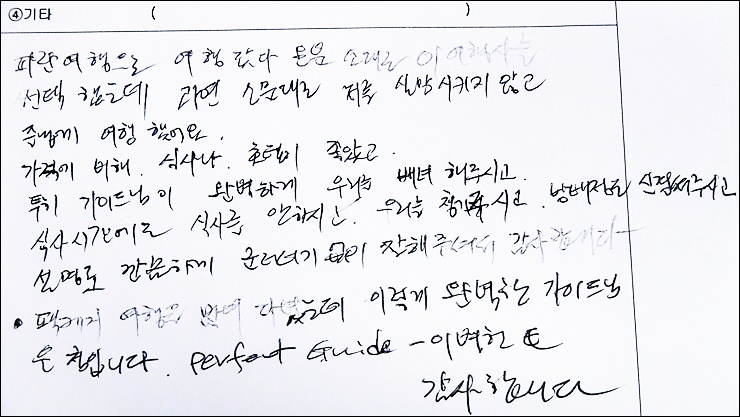 ④기타 (
파란여행으로 여행 갔다 온분 소개로 이 여행사를
선택 했는데 과연 소문대로 저를 실망시키지 않고
즐겁게 여행 했어요.
가격에 비해. 식사나. 호텔이 좋았고.
특히 가이드님이 완벽하게 우리를 배려 해주시고.
식사시간에도 식사를 안하시고. 우리를 챙겨주시고. 신경써주시고
설명도 깔끔하게 군더더기 없이 잘해주셔서 감사합니다
• 팩케지 여행을 많이 다녔는데 이렇게 완벽하는 가이드님
은 첨입니다. perfect Guide -
감사합니다